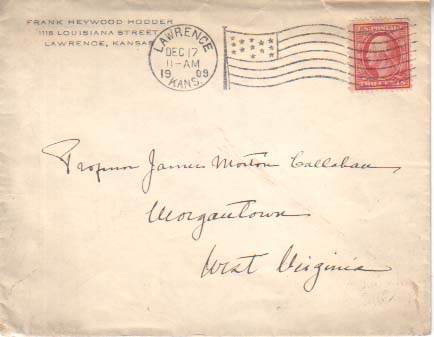 FRANK HEYWOOD HODDER
1115 LOUISIANA STREET
LAWRENCE, KANSAS
LAWRENCE
DEC 17
11-AM
1909
KANS.
U.S. POSTAGE
Professor James Morton Callahan
Morgantown
West Virginia